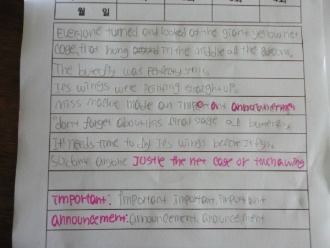 월 일
Everyone turned and looked at the giant yellow net
cage that hung in the middle of the room.
The butterfly was perfectly still.
Its wings were pointing straight up.
miss made an important announcement
don't forget about this final stage of butterfly
It needs time to dry its wings before it fly.
so dont anyone Justle the net cage or touch a wing
important: important important important
announcement: announcement anouncement